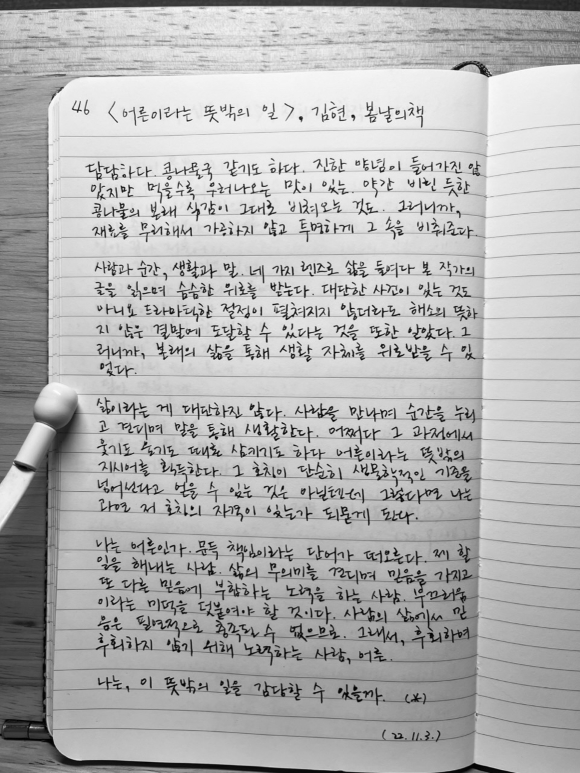 46 <어른이라는 뜻밖의 일>, 김현, 봄날의책
담담하다. 콩나물국 같기도 하다. 진한 양념이 들어가진 않
았지만 먹을수록 우러나오는 맛이 있는. 약간 비릿 듯한
콩나물의 본래 식감이 그대로 비쳐오는 것도. 그러니까,
재료를 무리해서 가공하지 않고 투명하게 그 속을 비춰준다.
사람과 순간, 생활과 말. 네 가지 렌즈로 삶을 들여다 본 작가의
글을 읽으며 슴슴한 위로를 받는다. 대단한 사건이 있는 것도
아니요 드라마틱한 절정이 펼쳐지지 않더라도 해소의 뜻하
지 않은 결말에 도달할 수 있다는 것을 또한 알았다. 그
러니까, 본래의 삶을 통해 생활 자체를 위로받을 수 있
었다.
삶이라는 게 대단하진 않다. 사람을 만나며 순간을 누리
고 견디며 말을 통해 생활한다. 어쩌다 그 과정에서
웃기도 울기도 때로 삼키기도 하다 어른이라는 뜻밖의
지시어를 획득한다. 그 호칭이 단순히 생물학적인 기준을
넘어선다고 얻을 수 있는 것은 아닐텐데 그렇다면 나는
과연 저 호칭의 자격이 있는가 되묻게 된다.
나는 어른인가. 문득 책임이라는 단어가 떠오른다. 제 할
일을 해내는 사람. 삶의 무의미를 견디며 믿음을 가지고
또 다른 믿음에 부합하는 노력을 하는 사람. 부끄러움
이라는 미덕을 덧붙여야 할 것이다. 사람의 삶에서 믿
음은 필연적으로 충족될 수 없으므로. 그래서, 후회하며
후회하지 않기 위해 노력하는 사람, 어른.
나는, 이 뜻밖의 일을 감당할 수 있을까. (*)
(22.11.3.)